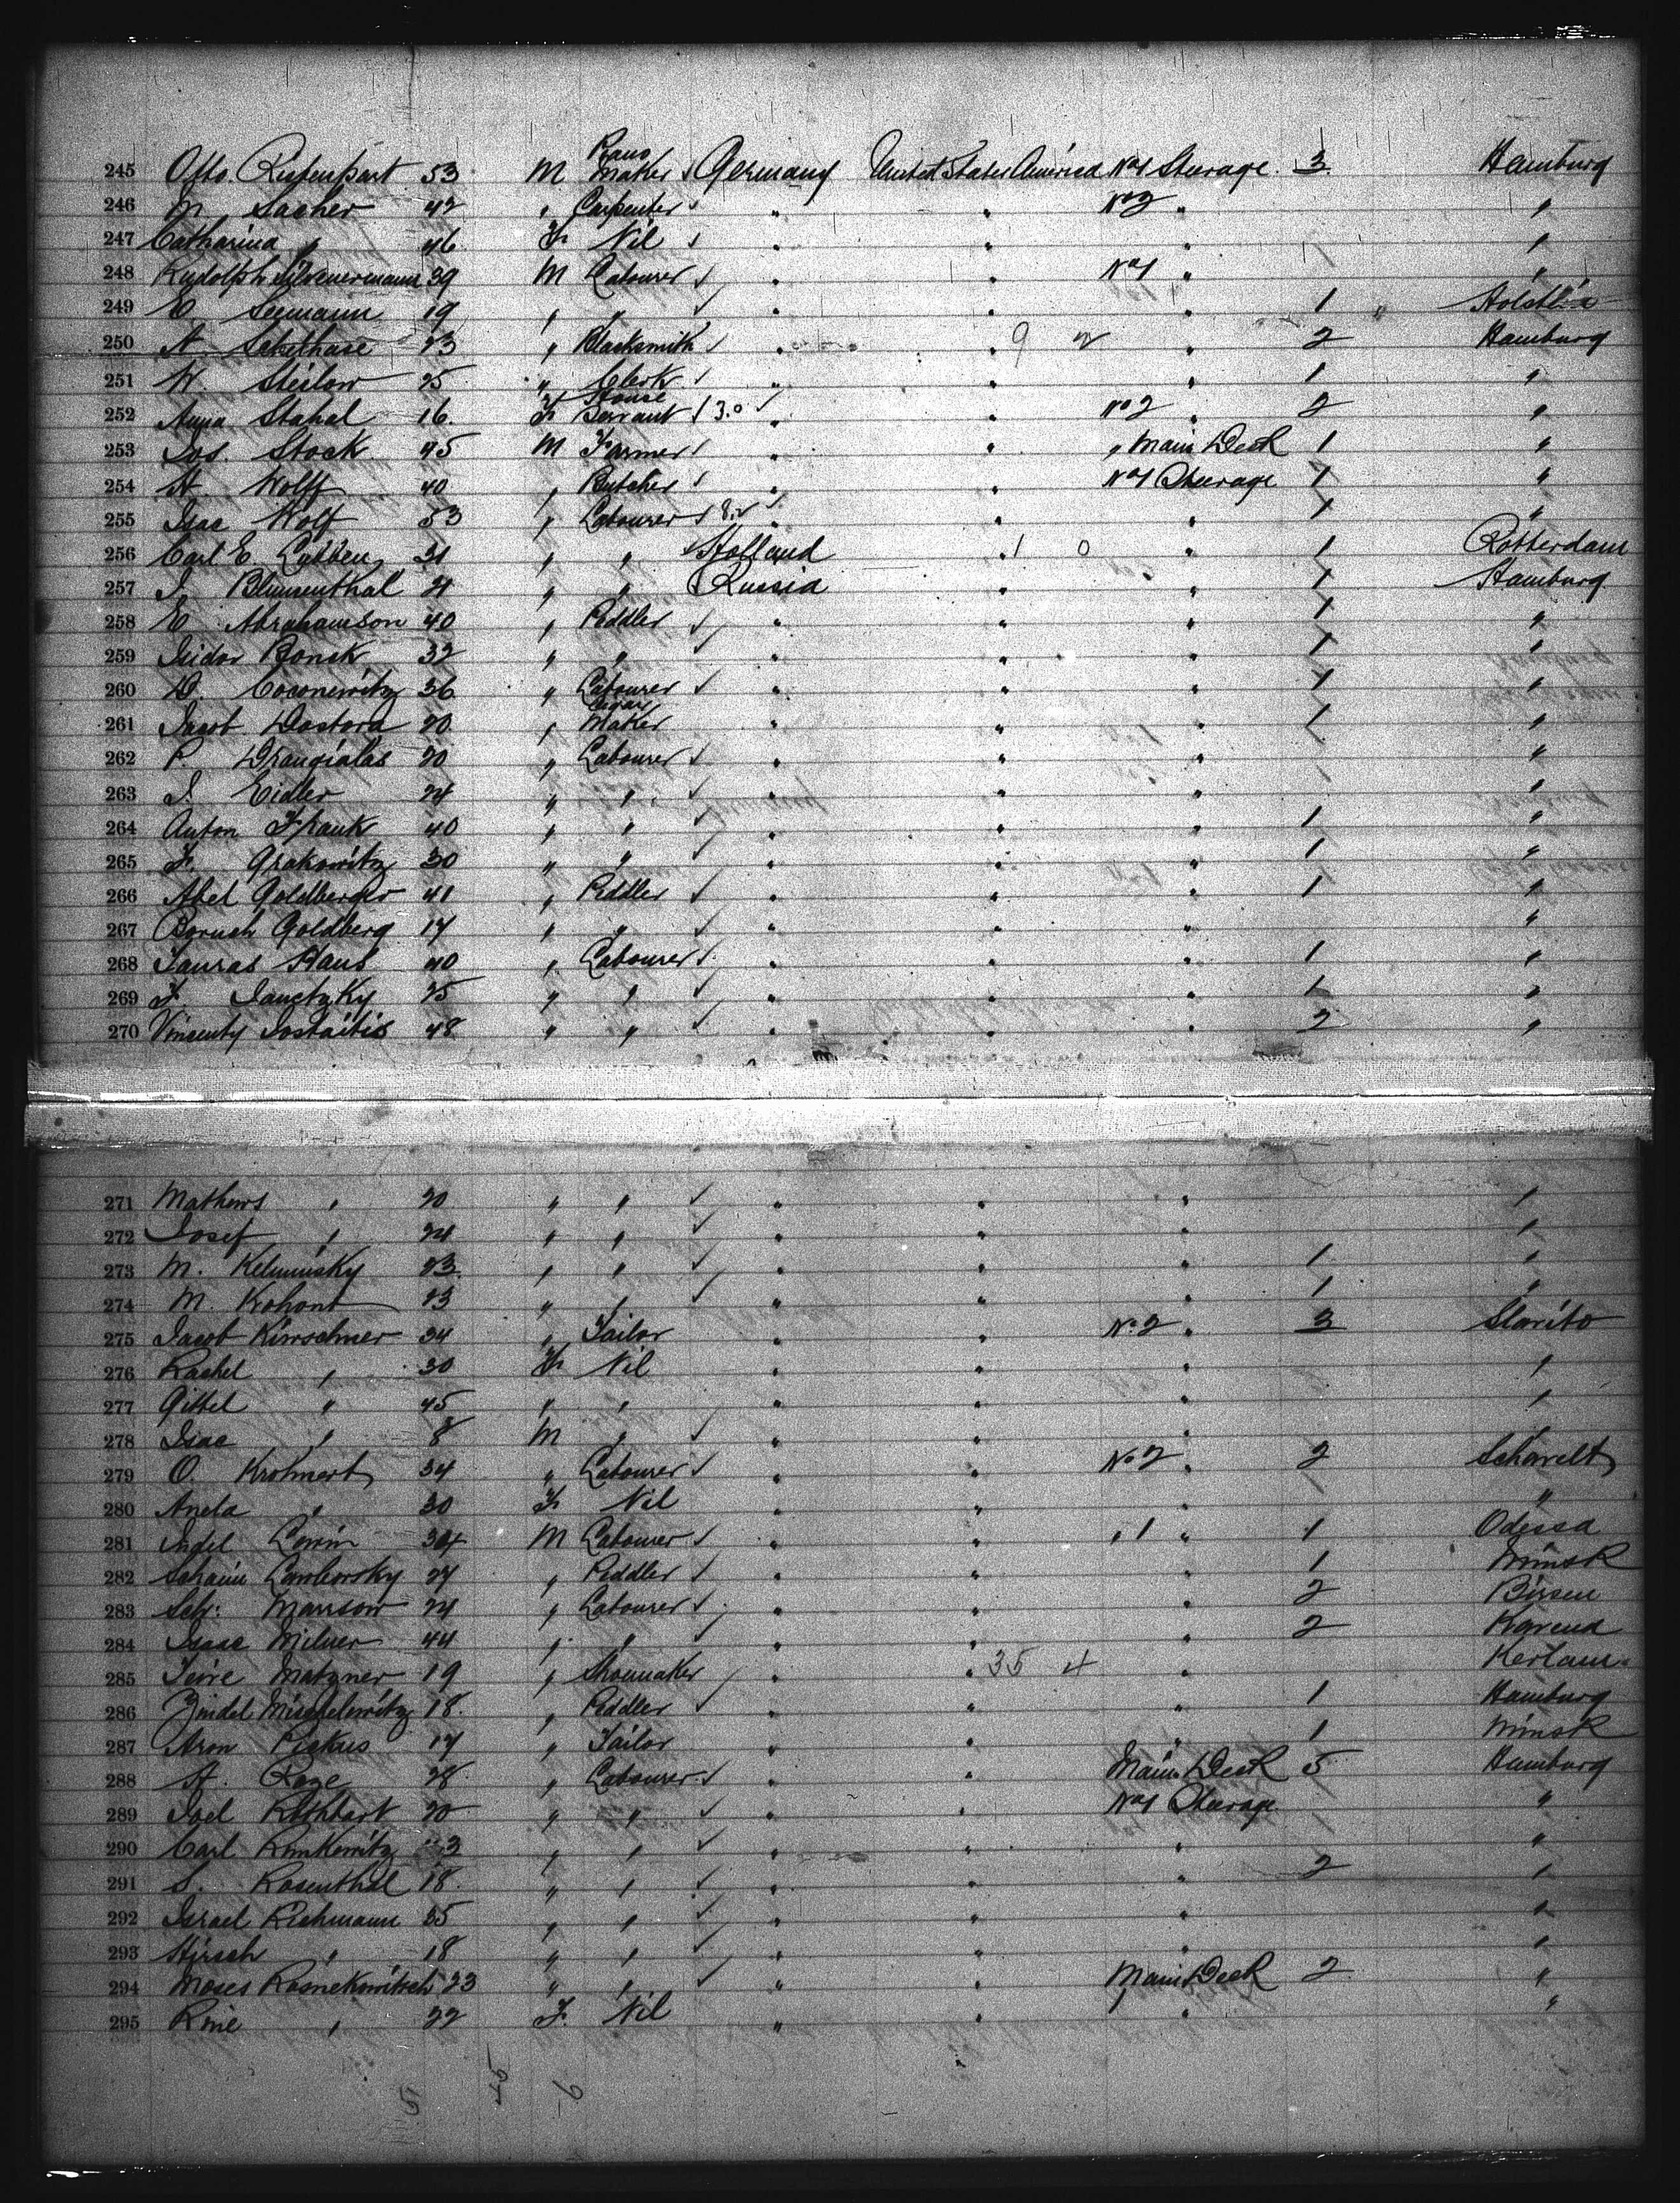 245 Otto. Riefenpart 53 M Piano Maker Germany United States America No 1 Steerage. 3. Hamburg
246 N. Sacher 42 " Carpenter " " No 2 " "
247 Catharina " 46 F. Nil " " " "
248 Rudolph 39 M Labourer " " No 1 " "
249 E. Seemann 19 " " " " " 1
250 A. Schelhase 23 " Blacksmith " 9 2 " 2 Hamburg
251 W. Steilow 25 " Clerk " " " 1 "
252 Anna Stahal 16. F House Servant 3.0 " No 2 " 2 "
253 Jos. Stock 45 M Farmer " " " Main Deck 1 "
254 A. Wolff 40 " Butcher " " No 1 Steerage 1 "
255 Isac Wolf 53 " Labourer 8.2 " " " 1 "
256 Carl E. 31 " " Holland " 1 0 " 1 Rotterdam
257 J. Blumenthal 21 " " Russia " " 1 Hamburg
258 E. Abrahamson 40 " Peddler " " " 1 "
259 Isidor Bonsk 32 " " " " " 1 "
260 D. Coconewitz 36 " Labourer " " " 1 "
261 Jacob Dostora 20. " Cigar Maker " " " 1 "
262 P. Draugialas 20 " Labourer " " " "
263 J. Eidler 24 " " " " " "
264 Anton Frank 40 " " " " " 1 "
265 F. Grakowitz 30 " " " " " 1 "
266 Abel Goldberger 41 " Peddler " " " 1 "
267 Boruch Goldberg 17 " " " " " "
268 Tauras Haus 40 " Labourer " " " 1 "
269 F. Janetzky 25 " " " " " 1 "
270 Vincenty Jostaitis 48 " " " " " 2 "
271 Mathews " 20 " " " " " "
272 Josef " 24 " " " " " "
273 M. Kelminsky 23. " " " " " 1 "
274 M. Kohont 23 " " " " " 1 "
275 Jacob Kirschner 34 " Tailor " " No. 2 " 3
276 Rachel " 30 F. Nil " " " "
277 Gittel " 45 " " " " " "
278 Isac " 8 M " " " " "
279 O. Krohnert 34 " Labourer " " No 2 " 2
280 Anela " 30 F. Nil " " " "
281 Judel Lewin 34 M Labourer " " " 1 " 1 Odessa
282 27 " Peddler " " " 1 Minsk
283 Sch: Manson 24 " Labourer " " " 2 Birsen
284 Isaac Milner 44 " " " " " 2
285 Matzner 19 " Shoemaker " 35 4 "
286 Zindel Mischelewitz 18. " Peddler " " " 1 Hamburg
287 Aron Pickus 17 " Tailor " " " 1 Minsk
288 A. Roze 28 " Labourer " " Main Deck 5 Hamburg
289 Joel Rothbart 20 " " " " No 1 Steerage. "
290 Carl Rimkewitz " " " " " "
291 S. Rosenthal 18. " " " " " 2 "
292 Israel Richmann 35 " " " " " "
293 Hirsch " 18 " " " " " "
294 Moses Rosnekowitsch 23 " " " " Main Deck 2 "
295 Rine " 22 F. Nil " " " "